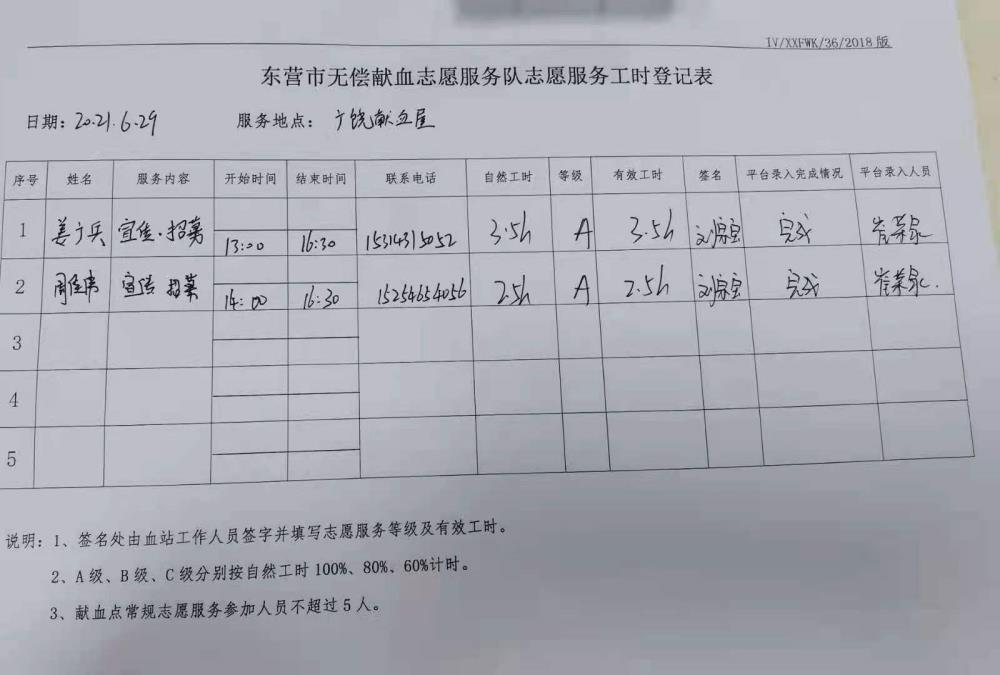 IV/XXFWK/36/2018 版
东营市无偿献血志愿服务队志愿服务工时登记表
日期: 2021.6.29 服务地点: 广饶献血屋
序号 姓名 服务内容 开始时间 结束时间 联系电话 自然工时 等级 有效工时 签名 平台录入完成情况 平台录入人员
1 姜广兵 宣传.招募 13:00 16:30 15314315052 3.5h A 3.5h 完成
2 宣传 招募 14:00 16:30 15254654056 2.5h A 2.5h 完成
3
4
5
说明: 1、签名处由血站工作人员签字并填写志愿服务等级及有效工时。
2、A 级、B 级、C 级分别按自然工时 100%、80%、60%计时。
3、献血点常规志愿服务参加人员不超过 5 人。